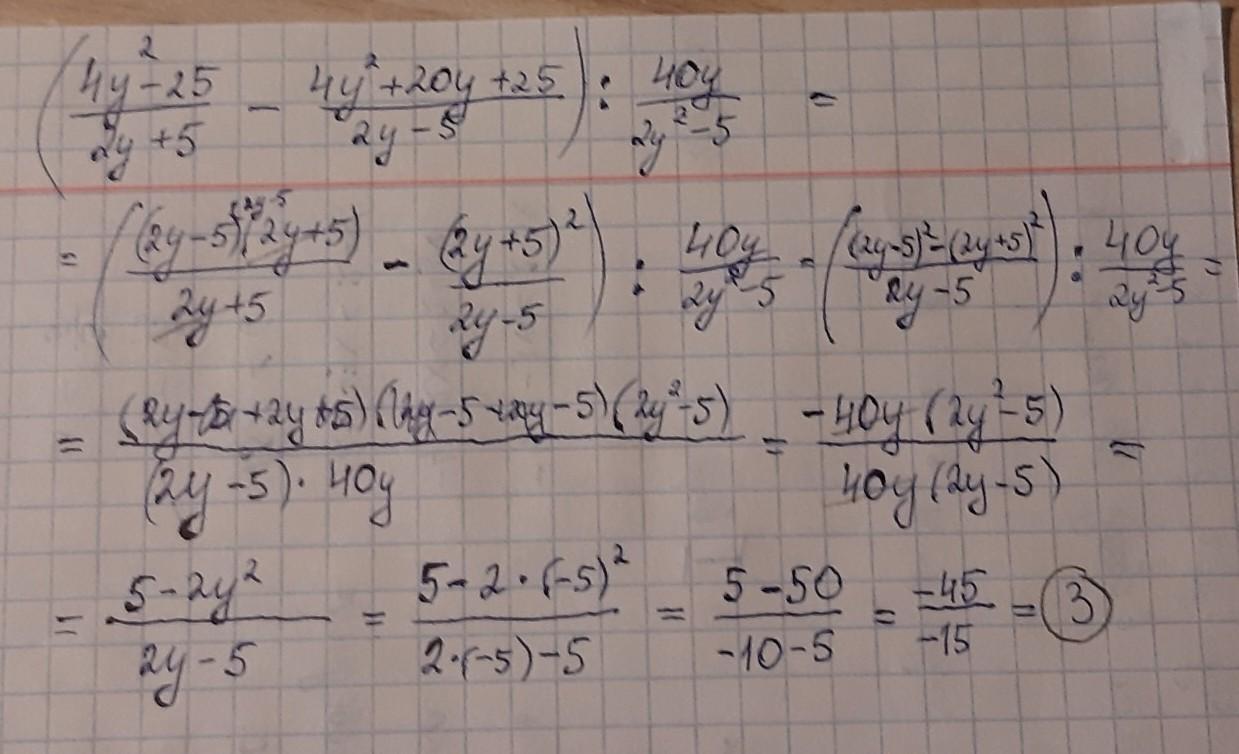 ((4y²-25)/(2y+5) - (4y²+20y+25)/(2y-5)) : 40y/(2y²-5) =
= ((2y-5)(2y+5)/(2y+5) - (2y+5)²/(2y-5)) : 40y/(2y²-5) = (((2y-5)²-(2y+5)²)/(2y-5)) : 40y/(2y²-5) =
= (2y-5+2y+5)(2y-5-2y-5)(2y²-5)/((2y-5)·40y) = -40y(2y²-5)/(40y(2y-5)) =
= (5-2y²)/(2y-5) = (5-2·(-5)²)/(2·(-5)-5) = (5-50)/(-10-5) = -45/-15 = 3